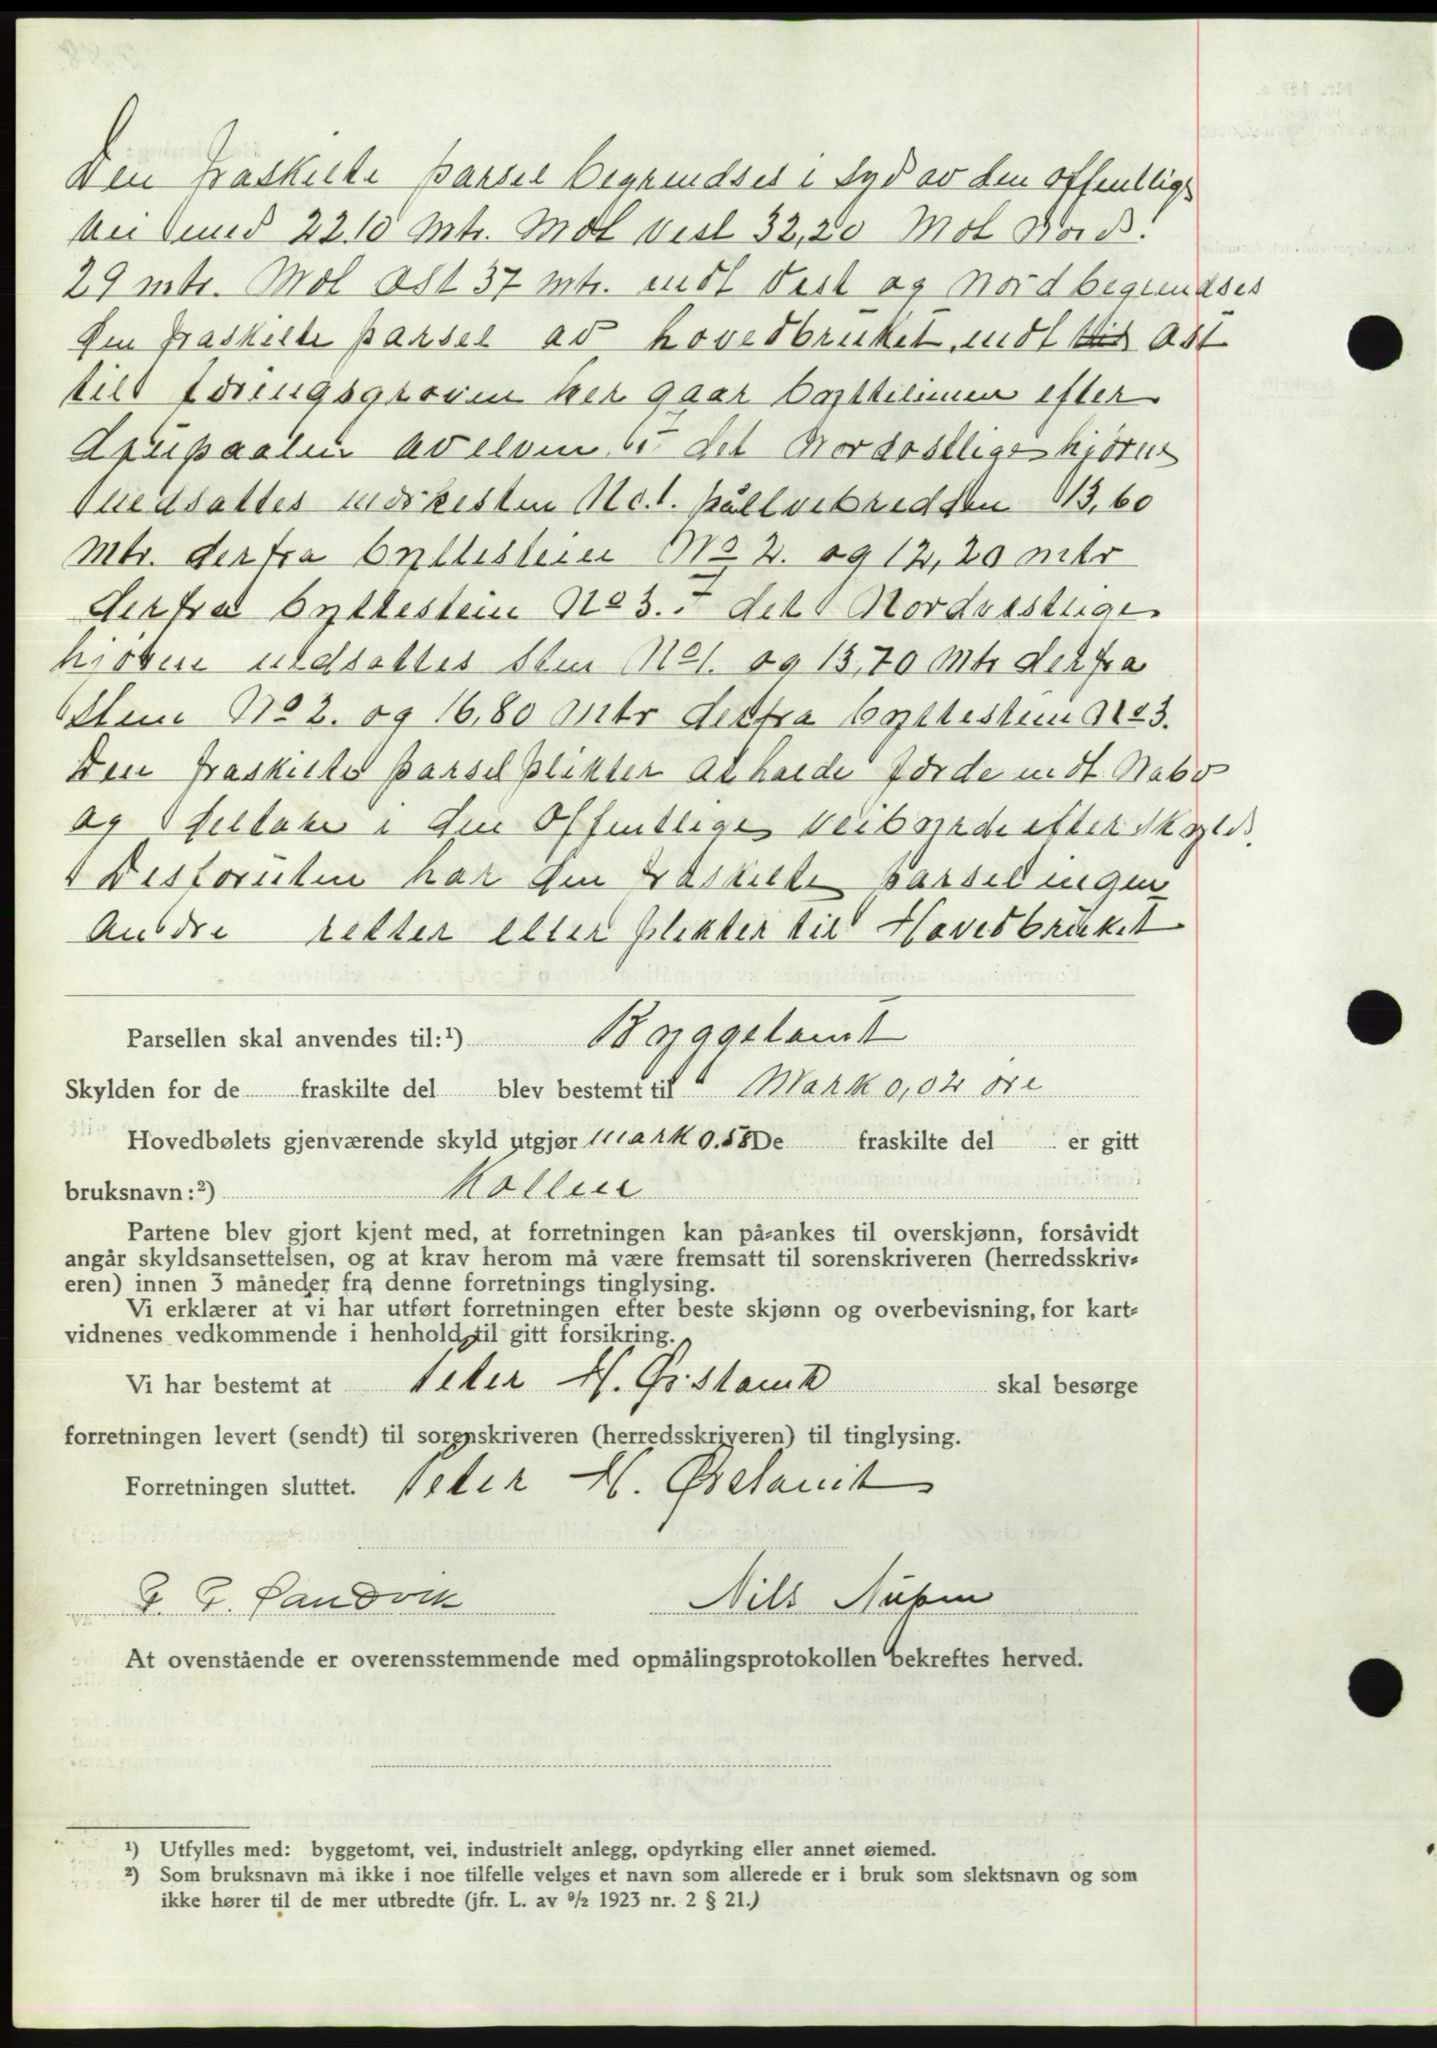 Den fraskilte parsel begrendses i Syd av den offentlige
vei med 22.10 mtr. Mot vest 32,20 Mot Nord.
29 mtr. Mot Øst 37 mtr. mot Vest og Nord begrendses
den fraskilte parsel av hovedbruket, mot Øst
til foringsgroven her gaar byttelinien efter
djupaalen av elven. I det Nordøstlige hjørne
nedsattes merkesten No. 1. på elvebredden 13,60
mtr. derfra byttestein No 2. og 12,20 mtr
derfra byttestein No 3. I det Nordvestlige
hjørne nedsattes Sten No 1. og 13,70 mtr derfra
Sten No 2. og 16,80 mtr derfra byttestein No 3.
Den fraskilte parsel plikter at holde gjerde mot Nabo
og deltake i den Offentlige veibyrde efter skyld.
Desforuten har den fraskilte parsel ingen
andre retter eller plikter til Hovedbruket
Parsellen skal anvendes til:¹) Byggetomt
Skylden for de fraskilte del blev bestemt til Mark 0,02 øre
Hovedbølets gjenværende skyld utgjør mark 0.58 De fraskilte del er gitt
bruksnavn:²) Kollen
Partene blev gjort kjent med, at forretningen kan på-ankes til overskjønn, forsåvidt
angår skyldsansettelsen, og at krav herom må være fremsatt til sorenskriveren (herredsskriv-
eren) innen 3 måneder fra denne forretnings tinglysing.
Vi erklærer at vi har utført forretningen efter beste skjønn og overbevisning, for kart-
vidnenes vedkommende i henhold til gitt forsikring.
Vi har bestemt at Peter H. Ørstavik skal besørge
forretningen levert (sendt) til sorenskriveren (herredsskriveren) til tinglysing.
Forretningen sluttet. Peter H.
Sandvik Nils
At ovenstående er overensstemmende med opmålingsprotokollen bekreftes herved.
¹) Utfylles med: byggetomt, vei, industrielt anlegg, opdyrking eller annet øiemed.
²) Som bruksnavn må ikke i noe tilfelle velges et navn som allerede er i bruk som slektsnavn og som
ikke hører til de mer utbredte (jfr. L. av ⁹/₂ 1923 nr. 2 § 21.)